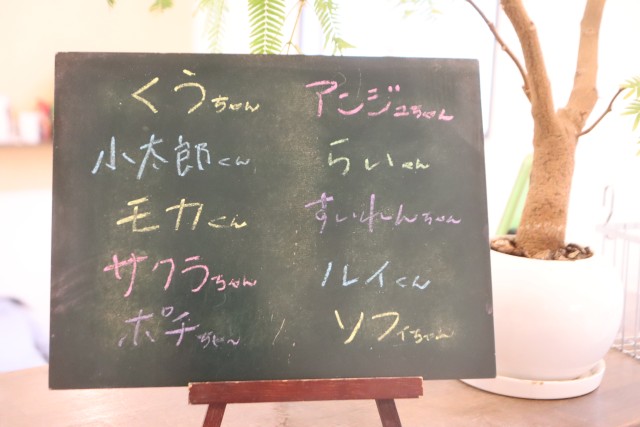 くうちゃん
小太郎くん
モカくん
サクラちゃん
ポチちゃん
アンジュちゃん
らいくん
すいれんちゃん
ルイくん
ソフィちゃん